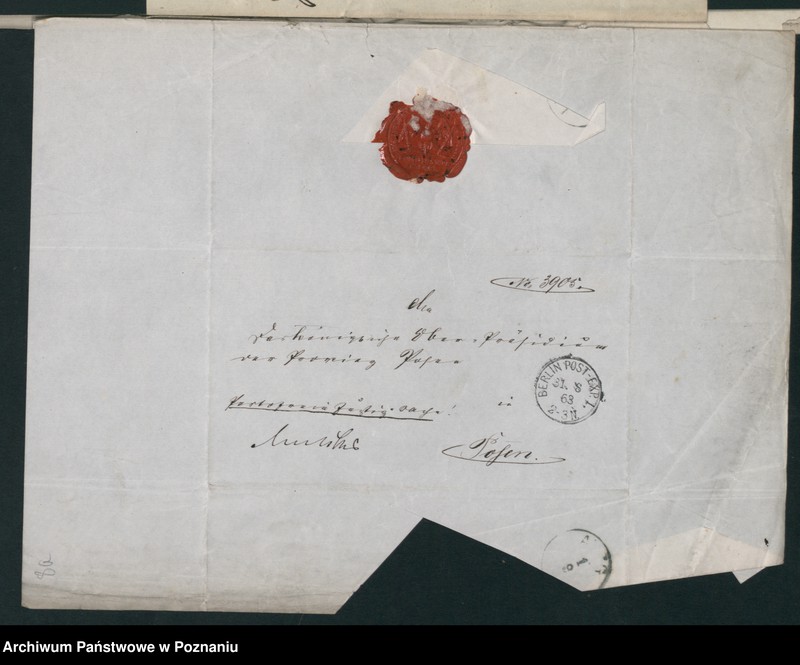 No. 3905.
An
das Königliche Ober-Präsidium
der Provinz Posen
in
Portofreie Justiz-Sache!
Posen.
BERLIN POST-EXP. 1.
31 8
63
2-3N
8a
Archiwum Państwowe w Poznaniu